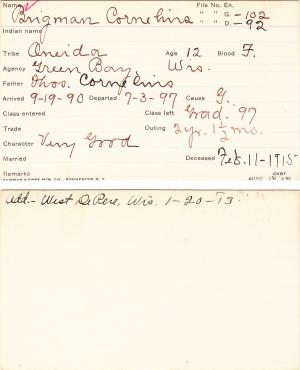 Name Brigman Cornelius File No. En.
" " G. -102
Indian name " " D. -92
Tribe Oneida Age 12 Blood F.
Agency Green Bay, Wis.
Father Thos. Cornelius
Arrived 9-19-90 Departed 7-3-97 Cause G.
Class entered Class left Grad. '97
Trade Outing 2 yr. 1½ mo.
Character Very Good
Married Deceased Feb. 11-1915
Remarks over
add.- West DePere, Wis. 1-20-13.